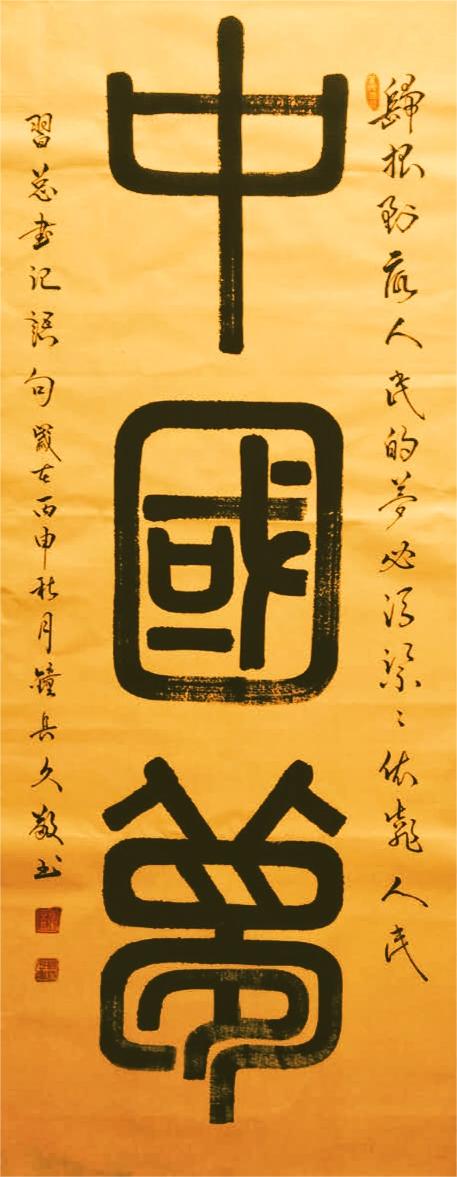 中國夢
歸根到底人民的夢必須緊〻依靠人民
習总書记語句歲在丙申秋月鐘兵久敬书